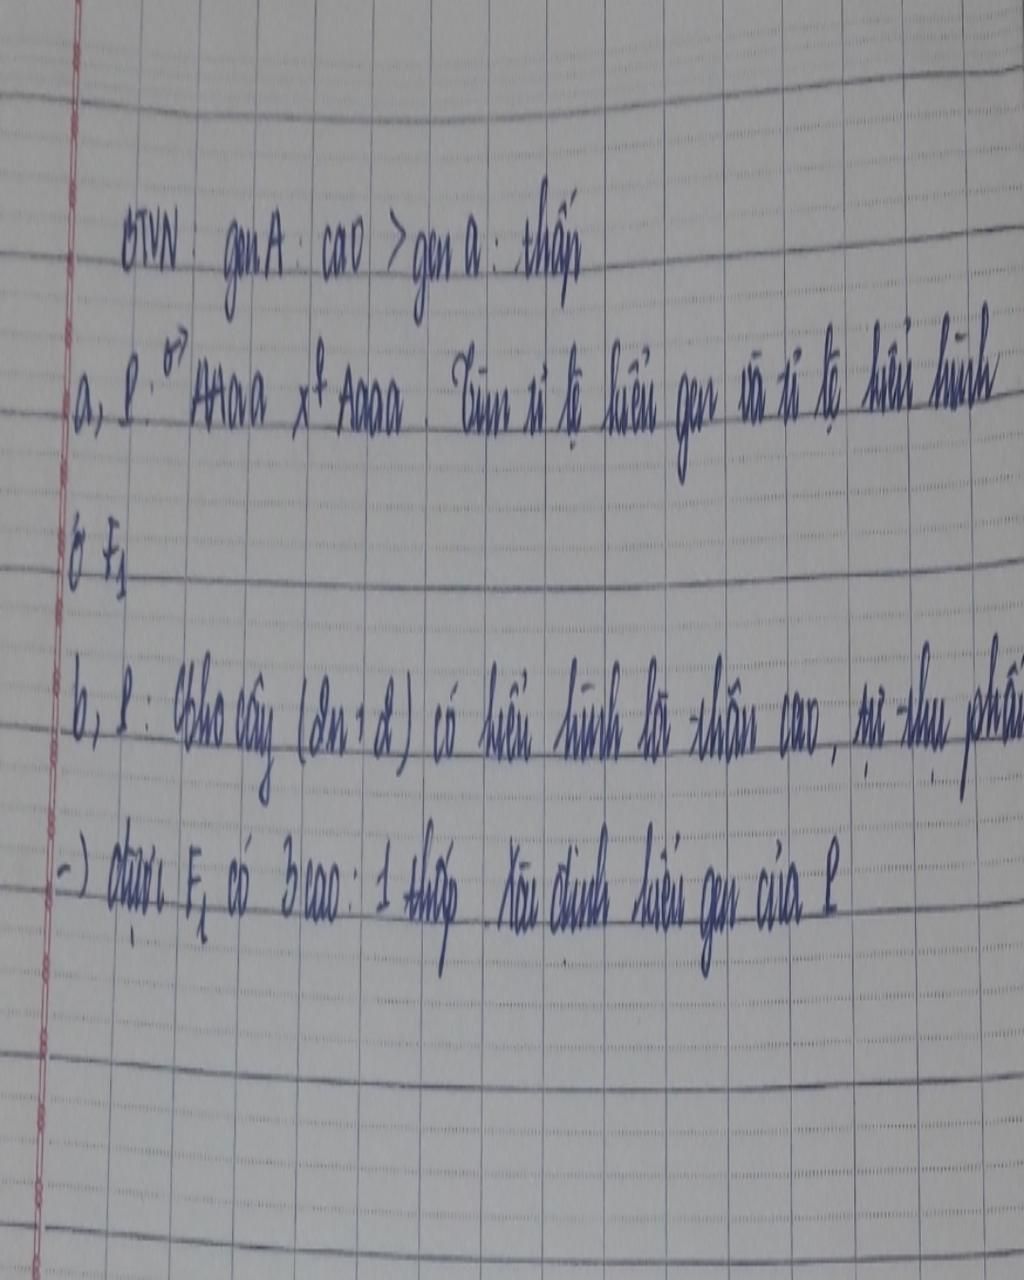 BTVN: gen A: cao > gen a: thấp
a, P: ♂ AAaa x ♀ Aaaa. Tìm tỉ lệ kiểu gen và tỉ lệ kiểu hình
ở F1
b, P: Cho cây (2n+2) có kiểu hình lời thân cao, tự thụ phấn
-) được F1 có 3 cao: 1 thấp Xác định kiểu gen của P